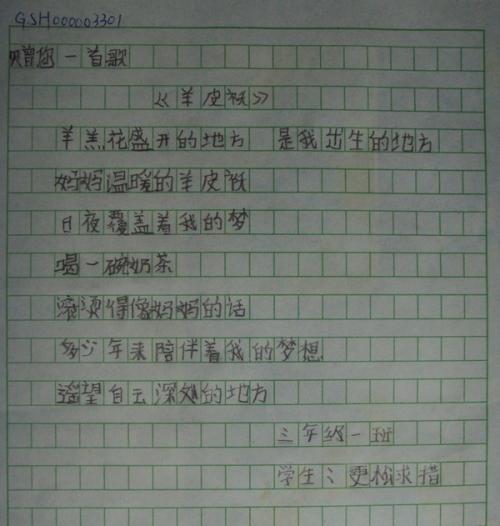 GSH000003301
赠您一首歌
《羊皮袄》
羊羔花盛开的地方 是我出生的地方
妈妈温暖的羊皮袄
日夜覆盖着我的梦
喝一碗奶茶
滚烫得像妈妈的话
多少年来陪伴着我的梦想
遥望自云深处的地方
三年级一班
学生：更松求措